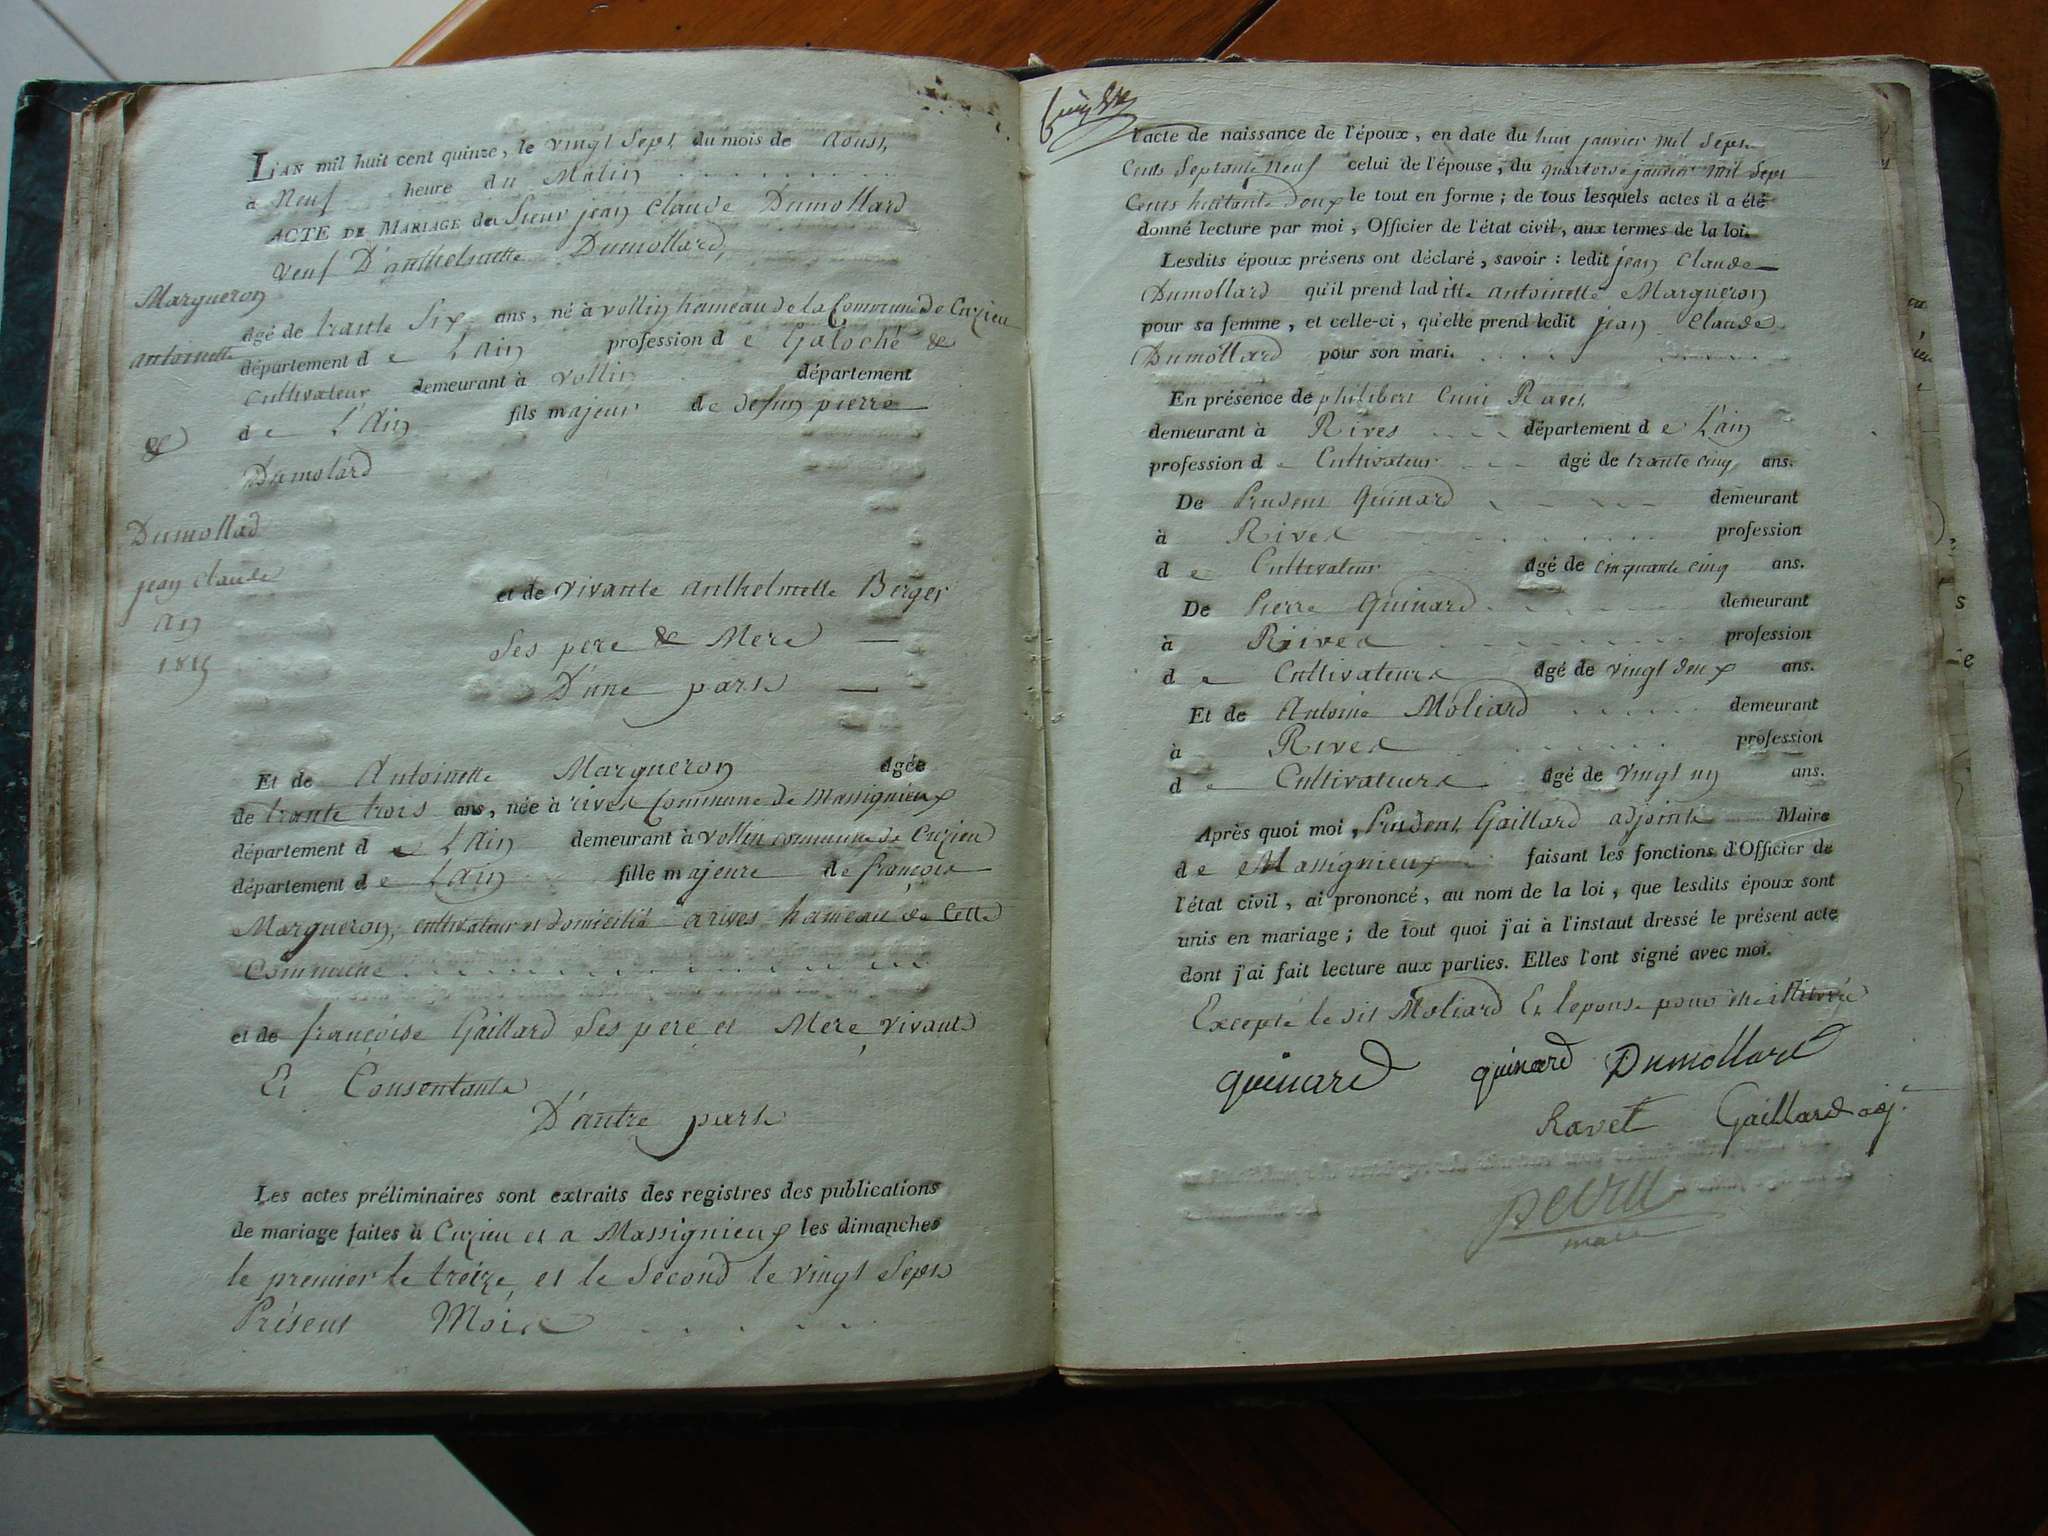 L'AN mil huit cent quinze, le vingt Sept du mois de Aoust,
à Neuf heure du Matin
ACTE DE MARIAGE de Sieur jean Claude Dumollard
Veuf D'anthelmette Dumollard,
Margueron
antoinette
&
Dumollad
jean claude
an
1815
âgé de trante Six ans, né à vollin hameau de la Commune de Cuzieu
département d e L'Ain profession d e Galoché &
Cultivateur demeurant à vollin département
d e L'Ain fils majeur de defun pierre
Dumolard
et de vivante anthelmette Berger
Ses pere & Mere
D'une part
Et de Antoinette Margueron âgée
de trante trois ans, née à rives Commune de Massignieux
département d e L'Ain demeurant à vollin commune de Cuzieu
département d e L'ain fille majeure de françois
Margueron, cultivateur et domicilié a rives hameau de Cette
Commune
et de françoise Gaillard Ses pere et Mere vivants
Et Consentants
D'autre part
Les actes préliminaires sont extraits des registres des publications
de mariage faites à Cuzieu et a Massignieux les dimanches
le premier le treize, et le Second le vingt Sept
Présent Mois
l'acte de naissance de l'époux, en date du huit janvier mil Sept
Cents Septante Neuf celui de l'épouse, du quatorse janvier mil Sept
Cents huitante Deux le tout en forme; de tous lesquels actes il a été
donné lecture par moi, Officier de l'état civil, aux termes de la loi.
Lesdits époux présens ont déclaré, savoir: ledit jean Claude
Dumollard qu'il prend laditte antoinette Margueron
pour sa femme, et celle-ci, qu'elle prend ledit jean Claude
Dumollard pour son mari.
En présence de philibert Cuni Ravet
demeurant à Rives département d e L'ain
profession d e Cultivateur âgé de trante cinq ans.
De Prudent Quinard demeurant
à Rives profession
d e Cultivateur âgé de cinquante cinq ans.
De Pierre Quinard demeurant
à Rives profession
d e Cultivateurs âgé de vingt deux ans.
Et de Antoine Moliard demeurant
à Rives profession
d e Cultivateurs âgé de vingt un ans.
Après quoi moi, Prudent Gaillard adjoint Maire
d e Massignieux faisant les fonctions d'Officier de
l'état civil, ai prononcé, au nom de la loi, que lesdits époux sont
unis en mariage; de tout quoi j'ai à l'instaut dressé le présent acte
dont j'ai fait lecture aux parties. Elles l'ont signé avec moi.
Excepté le dit Moliard Et lepouse pour
quinard quinard Dumollard
Ravet Gaillard adj.